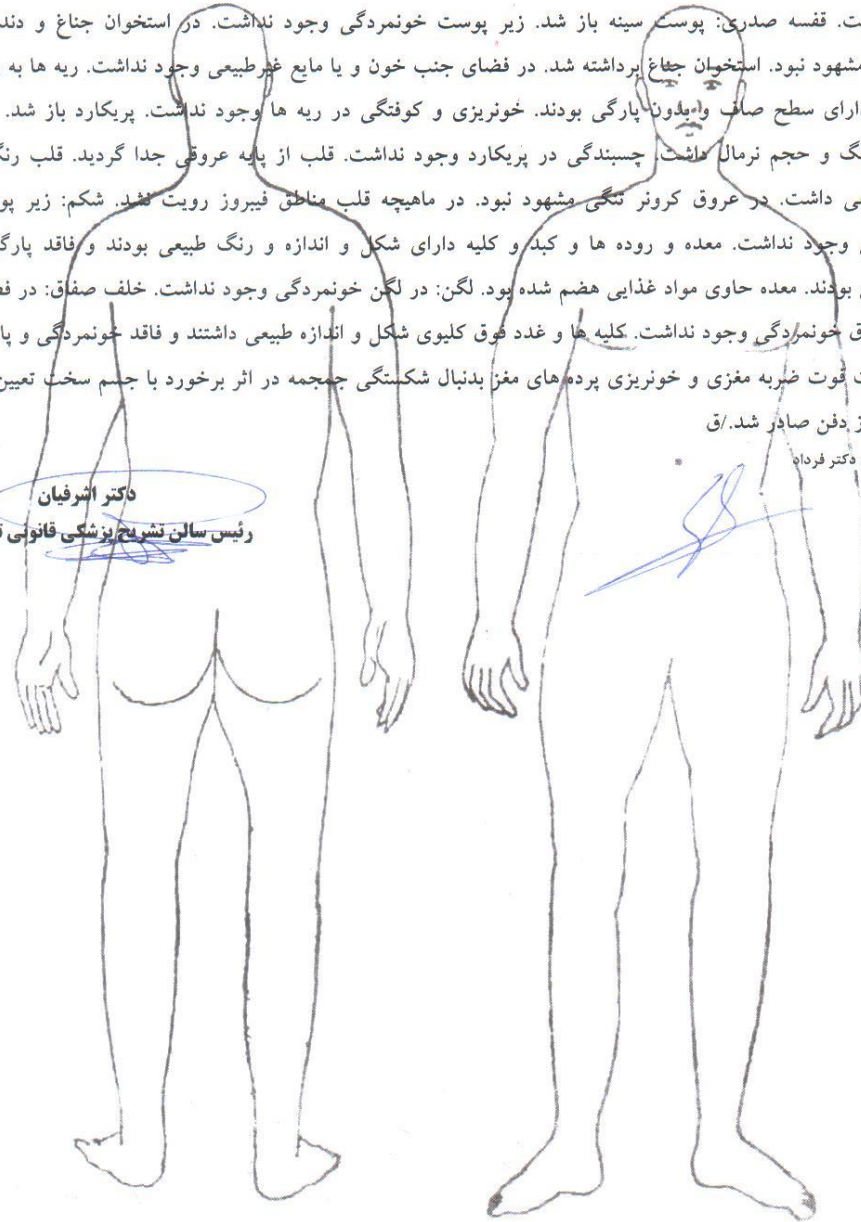 ت. قفسه صدری: پوست سینه باز شد. زیر پوست خونمردگی وجود نداشت. در استخوان جناغ و دند
مشهود نبود. استخوان جناغ برداشته شد. در فضای جنب خون و یا مایع غیرطبیعی وجود نداشت. ریه ها به
ارای سطح صاف و بدون پارگی بودند. خونریزی و کوفتگی در ریه ها وجود نداشت. پریکارد باز شد.
نگ و حجم نرمال داشت. چسبندگی در پریکارد وجود نداشت. قلب از پایه عروقی جدا گردید. قلب رنگ
ی داشت. در عروق کرونر تنگی مشهود نبود. در ماهیچه قلب مناطق فیبروز رویت نشد. شکم: زیر پو
وجود نداشت. معده و روده ها و کبد و کلیه دارای شکل و اندازه و رنگ طبیعی بودند و فاقد پارگ
بودند. معده حاوی مواد غذایی هضم شده بود. لگن: در لگن خونمردگی وجود نداشت. خلف صفاق: در فض
ق خونمردگی وجود نداشت. کلیه ها و غدد فوق کلیوی شکل و اندازه طبیعی داشتند و فاقد خونمردگی و پا
ت فوت ضربه مغزی و خونریزی پرده های مغز بدنبال شکستگی جمجمه در اثر برخورد با جسم سخت تعیین
ز دفن صادر شد./ق
دکتر فرداد
دکتر اشرفیان
رئیس سالن تشریح پزشکی قانونی